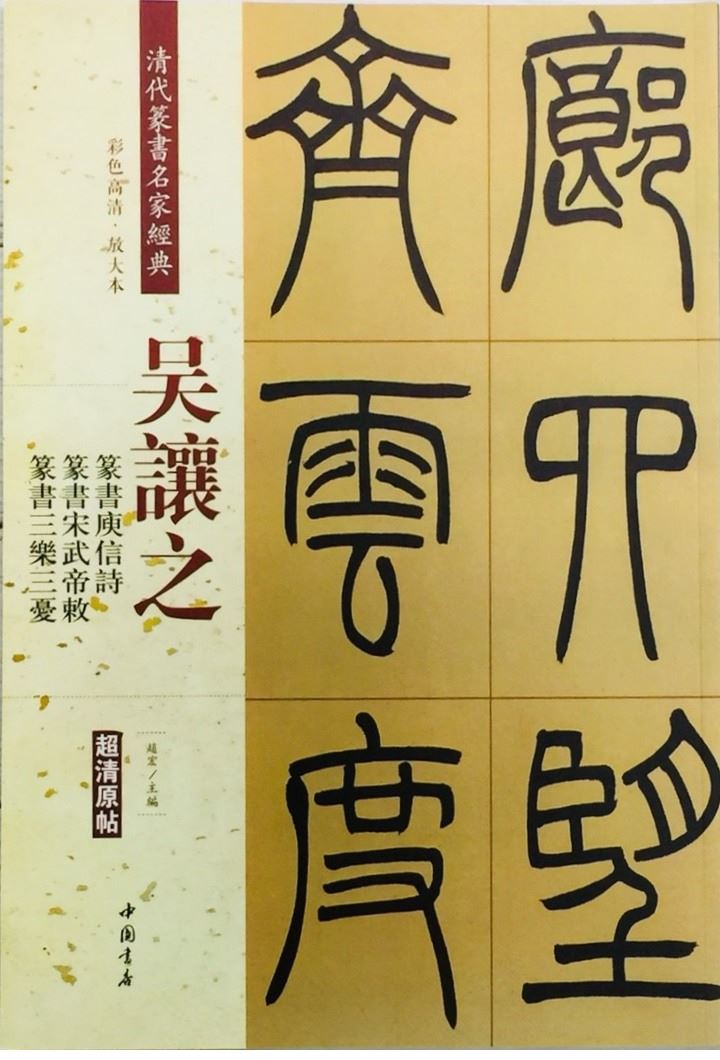 清代篆書名家經典
彩色高清·放大本
吴讓之
篆書庾信詩
篆書宋武帝敕
篆書三樂三憂
趙宏/主編
超清原帖
中國書店
廊四望
齊雲度